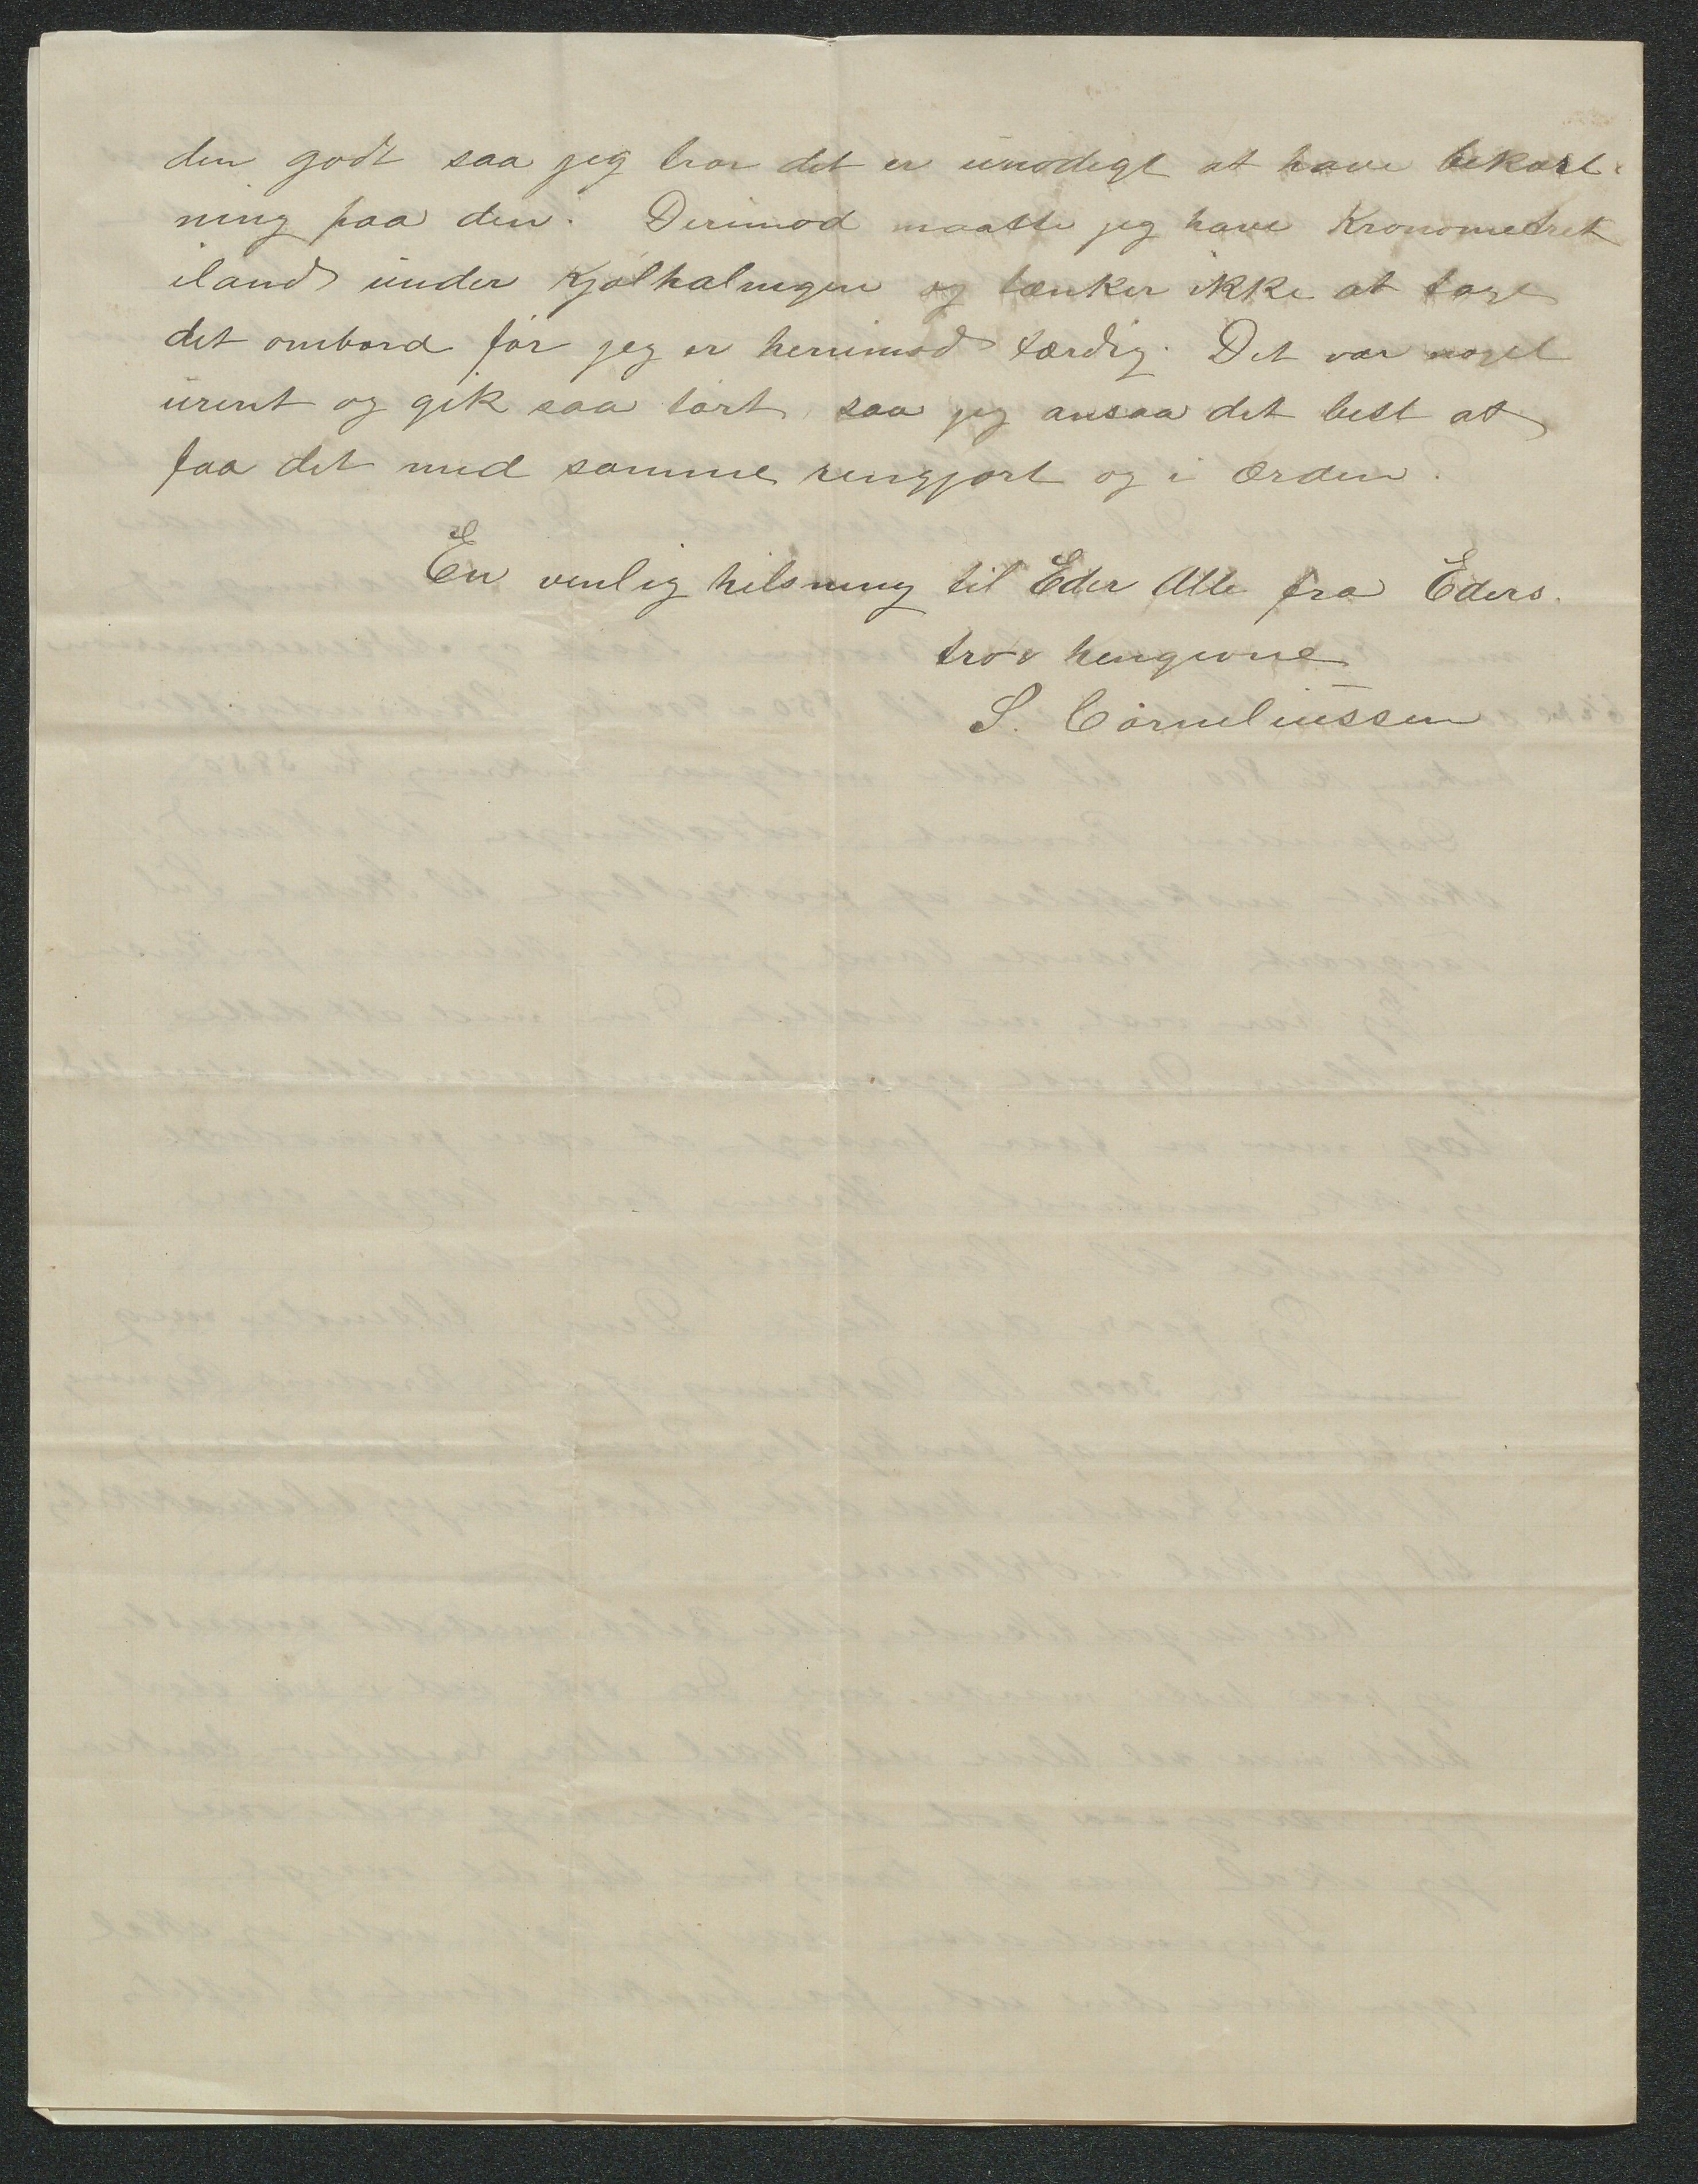 den godt saa jeg tror det er unødigt at have bekost-
ning paa den. Derimod maatte jeg have Kronometret
iland under Kjølhalingen og tænker ikke at tage
det ombord før jeg er henimod færdig. Det var noget
urent og gik saa tort saa jeg ansaa det best at
faa det med samme rengjort og i Orden.
En venlig hilsning til Eder Alle fra Eders
tro & hengivne
S. Corneliussen